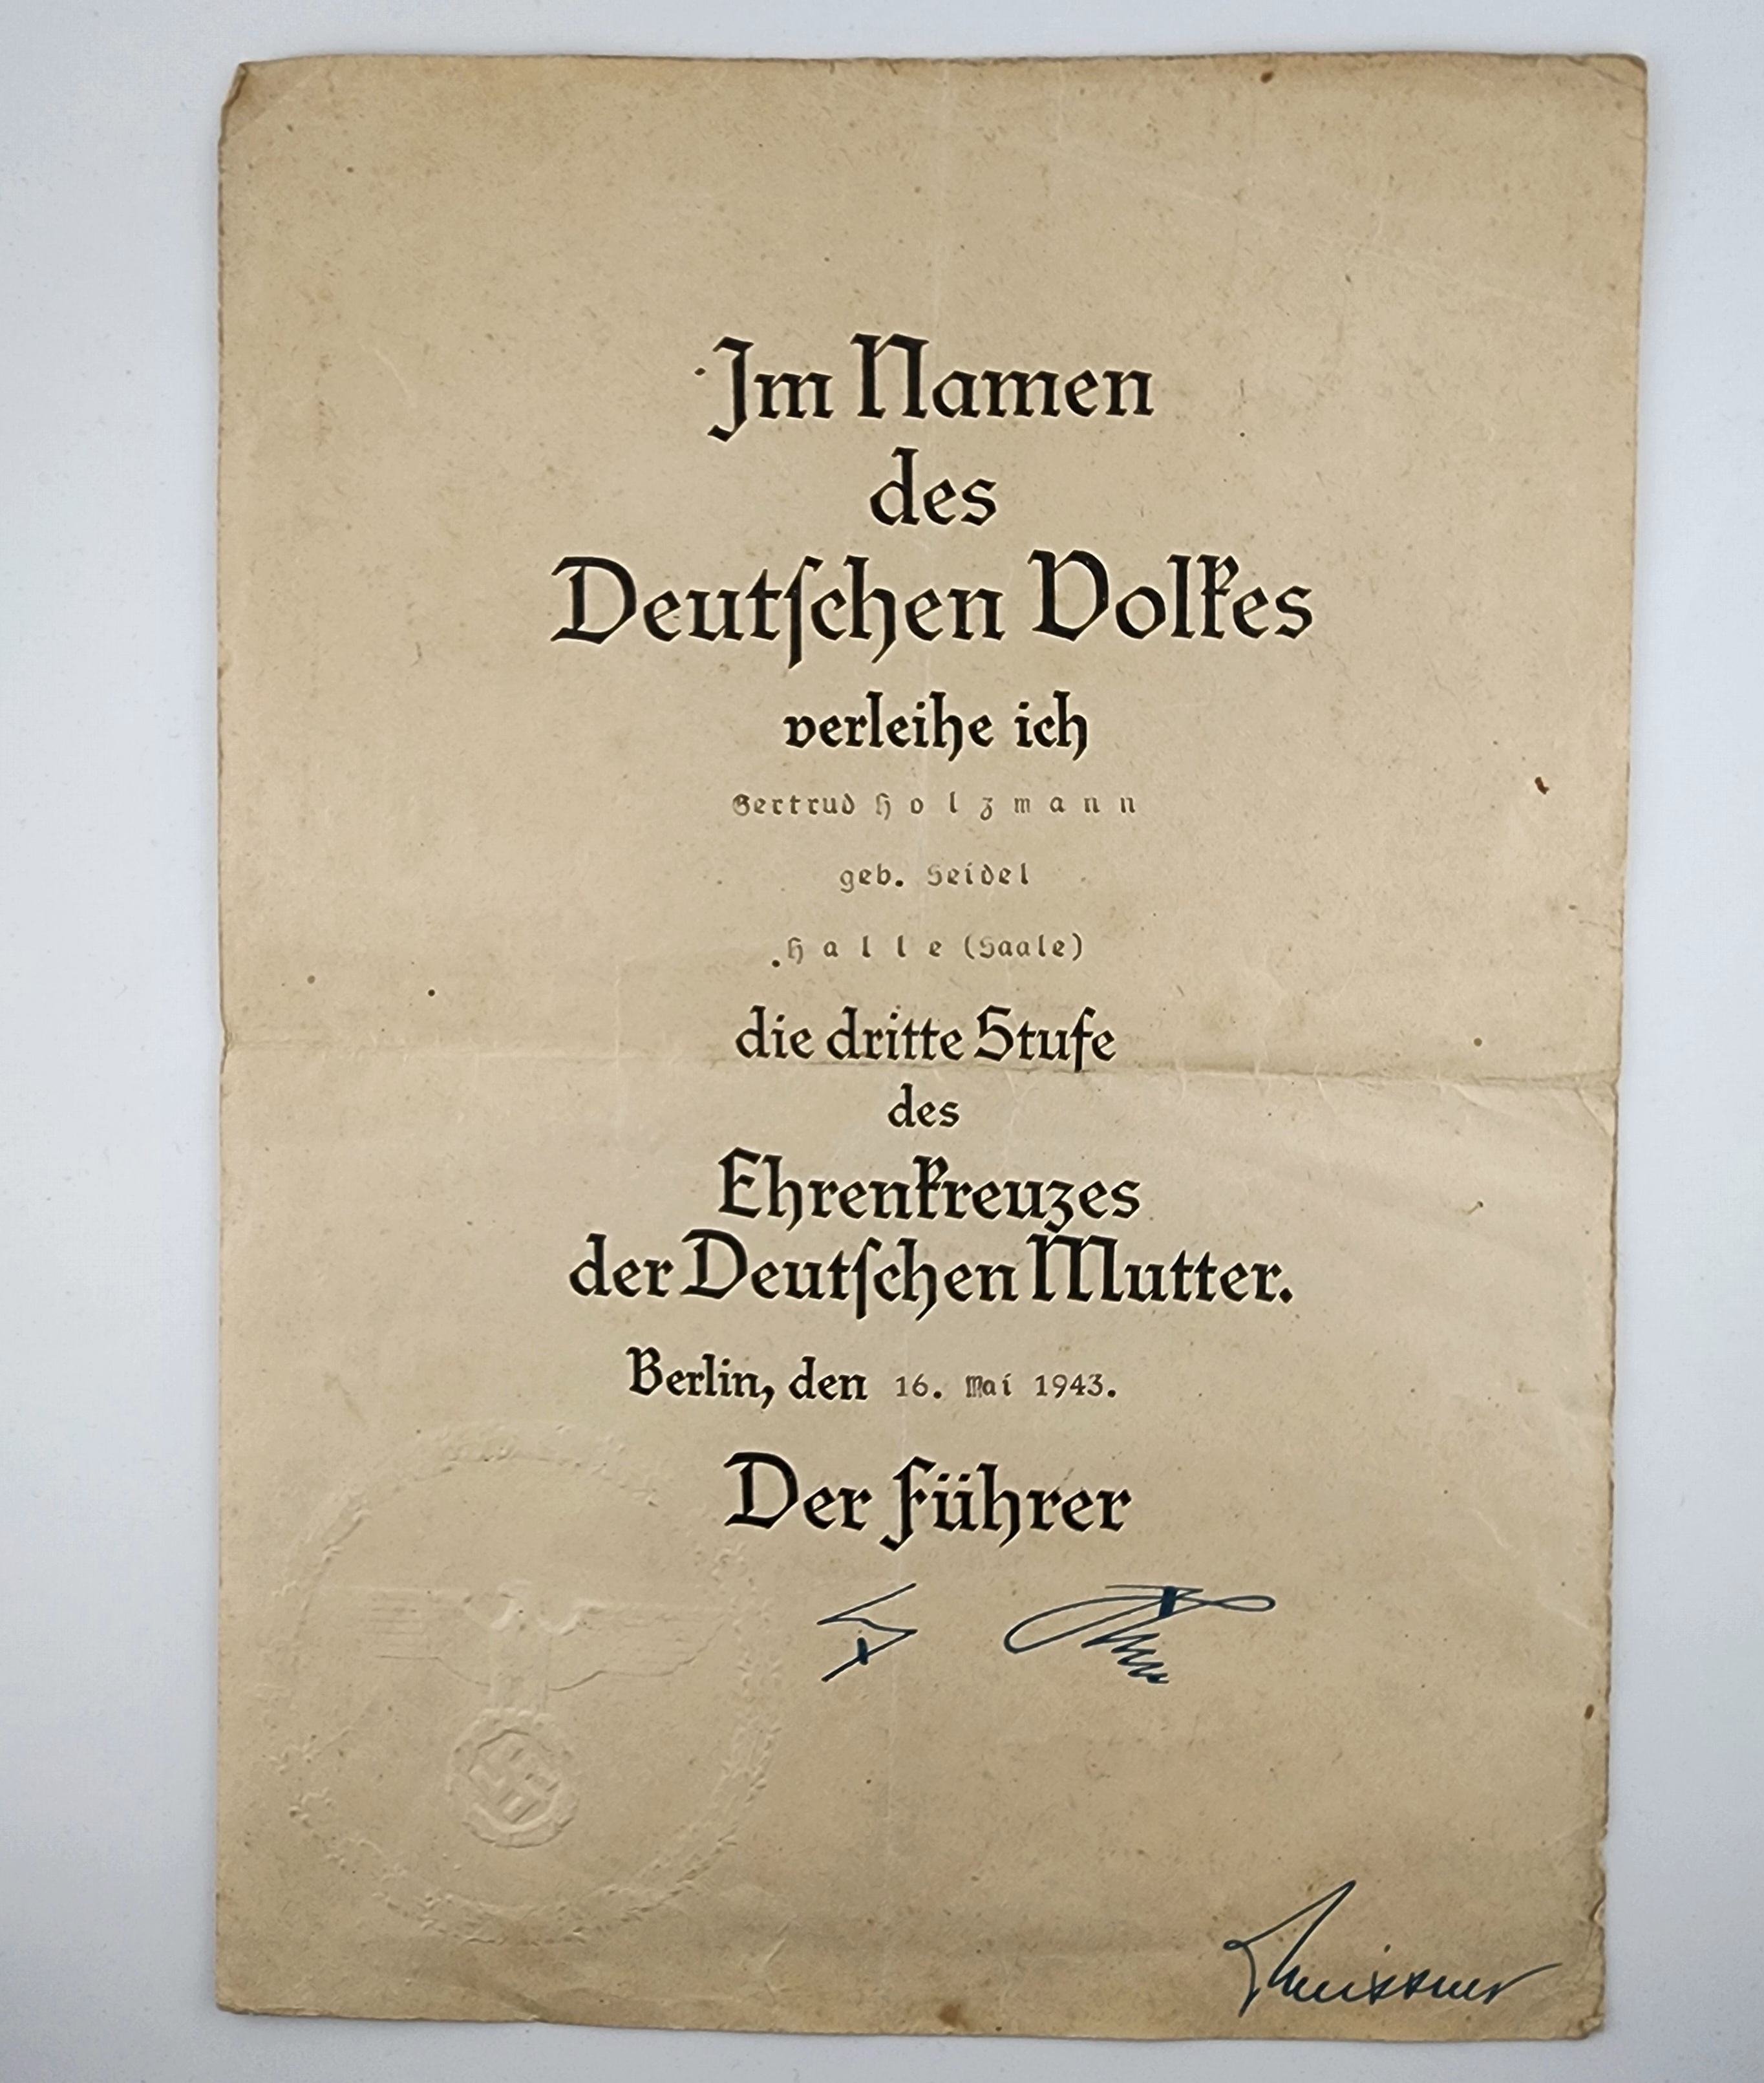 Im Namen
des
Deutſchen Volkes
verleihe ich
Gertrud Holzmann
geb. Seidel
Halle (Saale)
die dritte Stufe
des
Ehrenkreuzes
der Deutſchen Mutter.
Berlin, den 16. Mai 1943.
Der Führer
Meissner